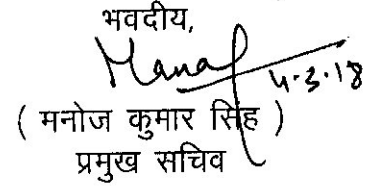 भवदीय,
Manoj 4.3.18
( मनोज कुमार सिंह )
प्रमुख सचिव